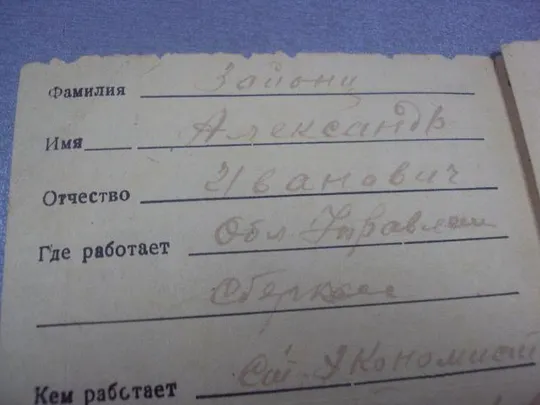 Фамилия Зайонц
Имя Александр
Отчество Иванович
Где работает Обл. Управлен
Сберкасс
Кем работает Ст. Экономист